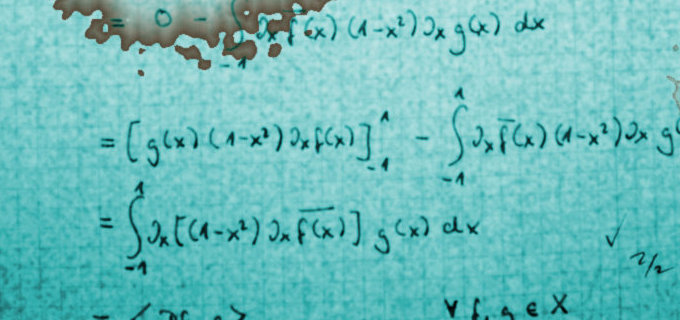 = 0 - ∫_{-1} ∂ₓ f̅(x) (1-x²) ∂ₓ g(x) dx
= [g(x) (1-x²) ∂ₓ f(x)]_{-1}^{1} - ∫_{-1}^{1} ∂ₓ f̅(x) (1-x²) ∂ₓ g(
= ∫_{-1}^{1} ∂ₓ[(1-x²) ∂ₓ f̅(̅x̅)̅] g(x) dx ✓
2/2
∀ f, g ∈ X